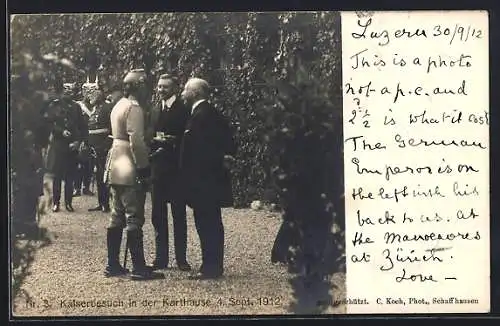 Luzern 30/9/12
This is a photo
not a p.c. and
2½ is what it cost
The German
Emperor is on
the left with his
back to us. at
the Manoevres
at Zürich.
Love —
Nr. 3. Kaiserbesuch in der Karthause 4. Sept. 1912
geschützt. C. Koch, Phot., Schaffhausen